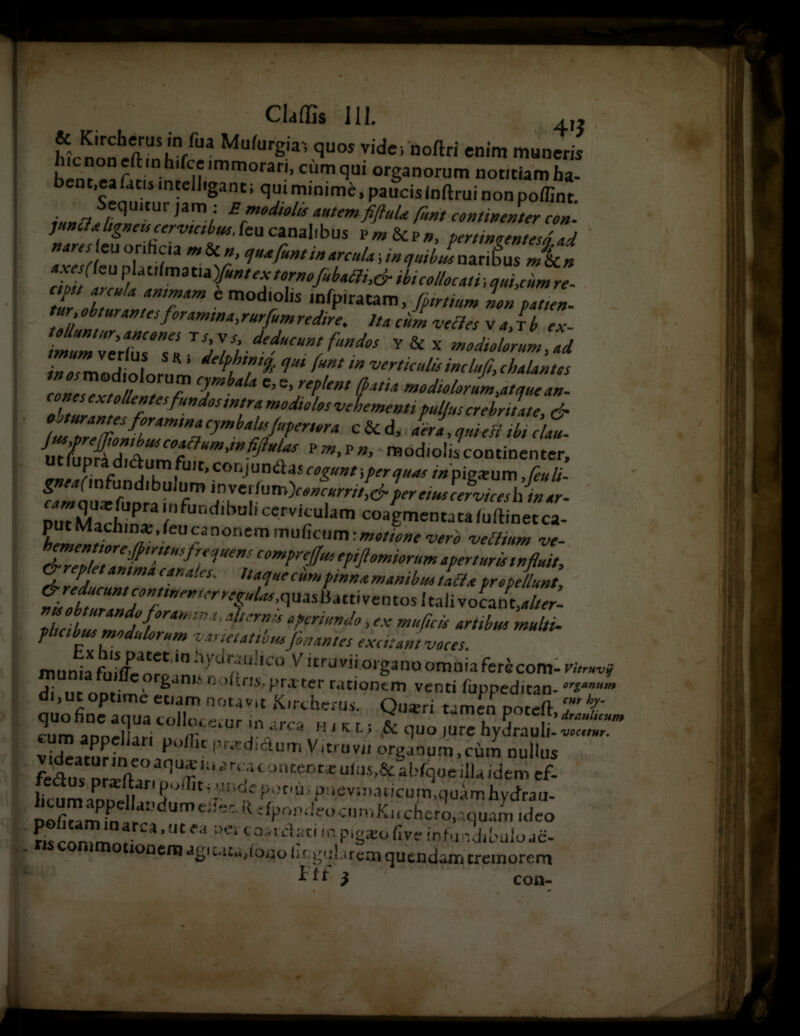 Classis III. 413
& Kircherus in sua Musurgia; quos vide; nostri enim muneris
hîc non est in hisce immorari, cùm qui organorum notitiam ha-
bent, ea satis intelligant; qui minimè, paucis instrui non possint.
Sequitur jam: E modiolis autem fistulæ sunt continenter con-
junctæ ligneis cervicibus, seu canalibus P m & P n, pertingentesq́; ad
nares seu orificia m & n, quæ sunt in arcula; in quibus naribus m & n
axes (seu platismatia) sunt ex torno subacti, & ibi collocati; qui, cùm re-
cipit arcula animam è modiolis inspiratam, spirtium non patien-
tur, obturantes foramina, rursum redire. Ita cùm vectes V a, T b ex-
tolluntur, ancones T s, V s, deducunt fundos Y & X modiolorum, ad
imum versus S R; delphiniq́; qui sunt in verticulis inclusi, chalantes
in os modiolorum cymbala e, e, replent spatia modiolorum, atque an-
cones extollentes fundos intra modiolos vehementi pulsus crebritate, &
obturantes foramina cymbalis superiora c & d, aëra, qui est ibi clau-
sus, pressionibus coactum, in fistulas P m, P n, modiolis continenter,
ut supra dictum fuit, conjunctas cogunt; per quas in pigæum, seu li-
gnea (infundibulum inversum) concurrit, & per eius cervices h in ar-
cam quæ supra infundibuli cerviculam coagmentata sustinet ca-
put Machinæ, seu canonem musicum: motione verò vectium ve-
hementiore, spiritus frequens compressus epistomiorum aperturis influit,
& replet animâ canales. Itaque cùm pinnæ manibus tactæ propellunt,
& reducunt continenter regulas, quas Battiventos Itali vocant, alter-
nis obturando foramina, alternis aperiundo, ex musicis artibus multi-
plicibus modulorum varietatibus sonantes excitant voces.
Ex his patet in hydraulico Vitruvii organo omnia ferè com-
munia fuisse organis nostris, præter rationem venti suppeditan-
di, ut optimè etiam notavit Kircherus. Quæri tamen potest,
quo fine aqua collocetur in arca H I K L; & quo jure hydrauli-
cum appellari possit prædictum Vitruvii organum, cùm nullus
videatur in eo aquæ in arca contentæ usus, & absque illa idem ef-
fectus præstari possit; unde potius pnevmaticum, quàm hydrau-
licum appellandum esset. Respondeo cum Kirchero, aquam ideo
positam in arca, ut ea in pigæo sive infundibulo aë-
ris commotionem agitata, sono singularem quendam tremorem
Fff 3 con-
Vitruvij
organum
cur hy-
draulicum
vocetur.